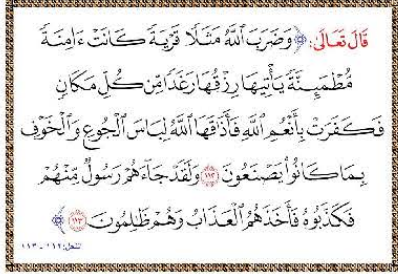 قَالَ تَعَالَىٰ: ﴿وَضَرَبَ ٱللَّهُ مَثَلًا قَرْيَةً كَانَتْ ءَامِنَةً
مُّطْمَئِنَّةً يَأْتِيهَا رِزْقُهَا رَغَدًا مِّن كُلِّ مَكَانٍ
فَكَفَرَتْ بِأَنْعُمِ ٱللَّهِ فَأَذَٰقَهَا ٱللَّهُ لِبَاسَ ٱلْجُوعِ وَٱلْخَوْفِ
بِمَا كَانُوا۟ يَصْنَعُونَ ۝١١٢ وَلَقَدْ جَآءَهُمْ رَسُولٌ مِّنْهُمْ
فَكَذَّبُوهُ فَأَخَذَهُمُ ٱلْعَذَابُ وَهُمْ ظَٰلِمُونَ ۝١١٣﴾
النحل: ١١٢ - ١١٣